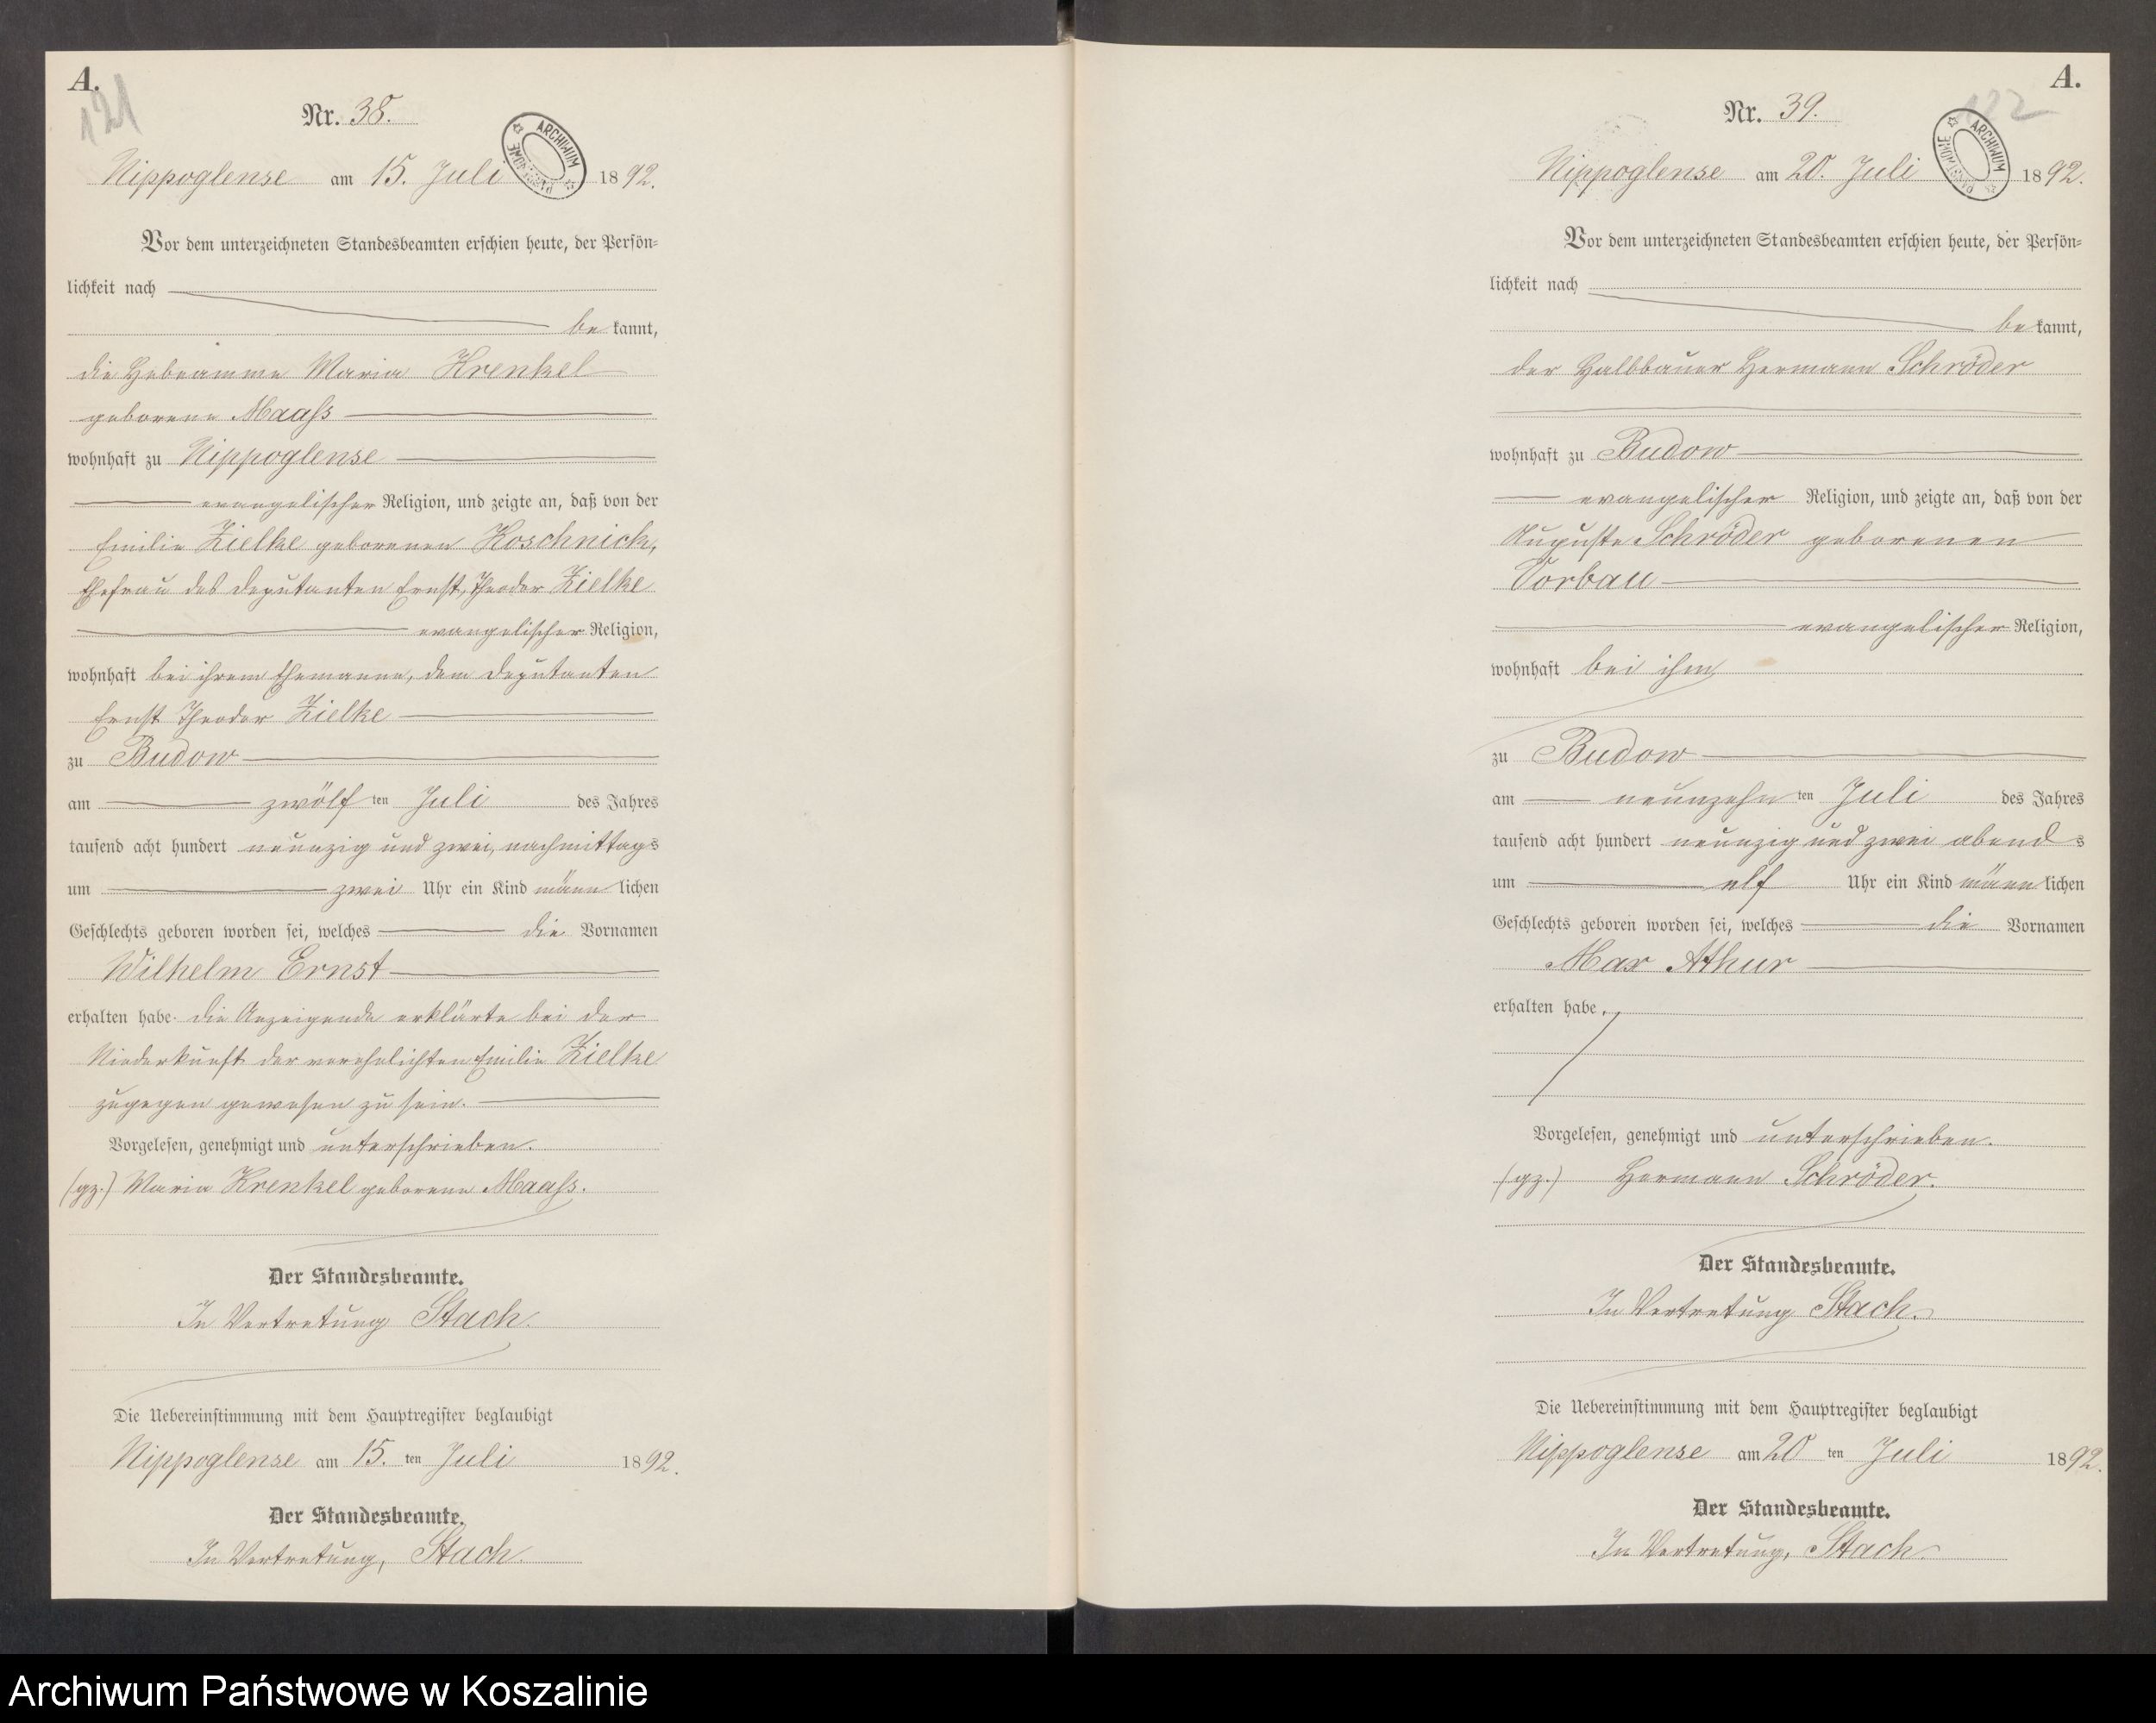 A.
121
Nr. 38.
ARCHIWUM PAŃSTWOWE
Nippoglense am 15. Juli 1892.
Vor dem unterzeichneten Standesbeamten erschien heute, der Persön=
lichkeit nach
be kannt,
die Hebeamme Maria Krenkel
geborene Maaß
wohnhaft zu Nippoglense
evangelischer Religion, und zeigte an, daß von der
Emilie Zielke geborenen Koschnick,
Ehefrau des Deputanten Ernst, Theodor Zielke
evangelischer Religion,
wohnhaft bei ihrem Ehemanne, dem Deputanten
Ernst Theodor Zielke
zu Budow
am zwölf ten Juli des Jahres
tausend acht hundert neunzig und zwei, nachmittags
um zwei Uhr ein Kind männ lichen
Geschlechts geboren worden sei, welches die Vornamen
Wilhelm Ernst
erhalten habe. Die Anzeigende erklärte bei der
Niederkunft der verehelichten Emilie Zielke
zugegen gewesen zu sein.
Vorgelesen, genehmigt und unterschrieben.
(gz.) Maria Krenkel geborene Maaß.
Der Standesbeamte.
In Vertretung Stach.
Die Uebereinstimmung mit dem Hauptregister beglaubigt
Nippoglense am 15. ten Juli 1892.
Der Standesbeamte.
In Vertretung, Stach.
A.
122
Nr. 39.
ARCHIWUM PAŃSTWOWE
Nippoglense am 20. Juli 1892.
Vor dem unterzeichneten Standesbeamten erschien heute, der Persön=
lichkeit nach
be kannt,
der Halbbauer Hermann Schröder
wohnhaft zu Budow
evangelischer Religion, und zeigte an, daß von der
Auguste Schröder geborenen
Vorbau
evangelischer Religion,
wohnhaft bei ihm
zu Budow
am neunzehn ten Juli des Jahres
tausend acht hundert neunzig und zwei abend s
um elf Uhr ein Kind männ lichen
Geschlechts geboren worden sei, welches die Vornamen
Max Athur
erhalten habe.
Vorgelesen, genehmigt und unterschrieben.
(gz.) Hermann Schröder.
Der Standesbeamte.
In Vertretung Stach.
Die Uebereinstimmung mit dem Hauptregister beglaubigt
Nippoglense am 20 ten Juli 1892.
Der Standesbeamte.
In Vertretung, Stach.
Archiwum Państwowe w Koszalinie